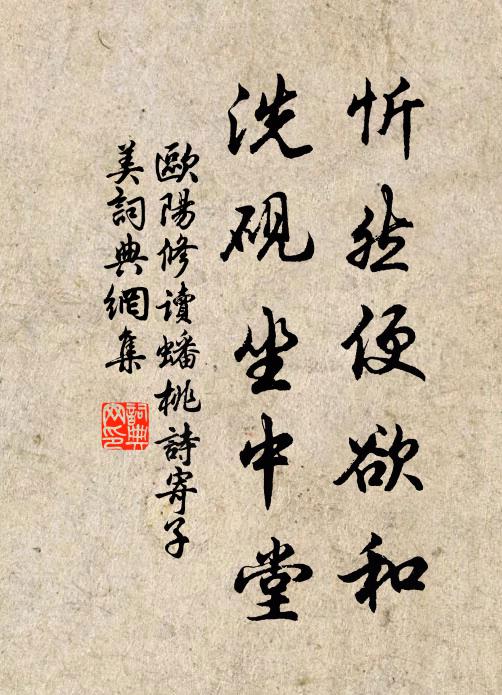 忻然便欲和
洗硯坐中堂
歐陽修讀蟠桃詩寄子
美詞典網集
詞典
网印